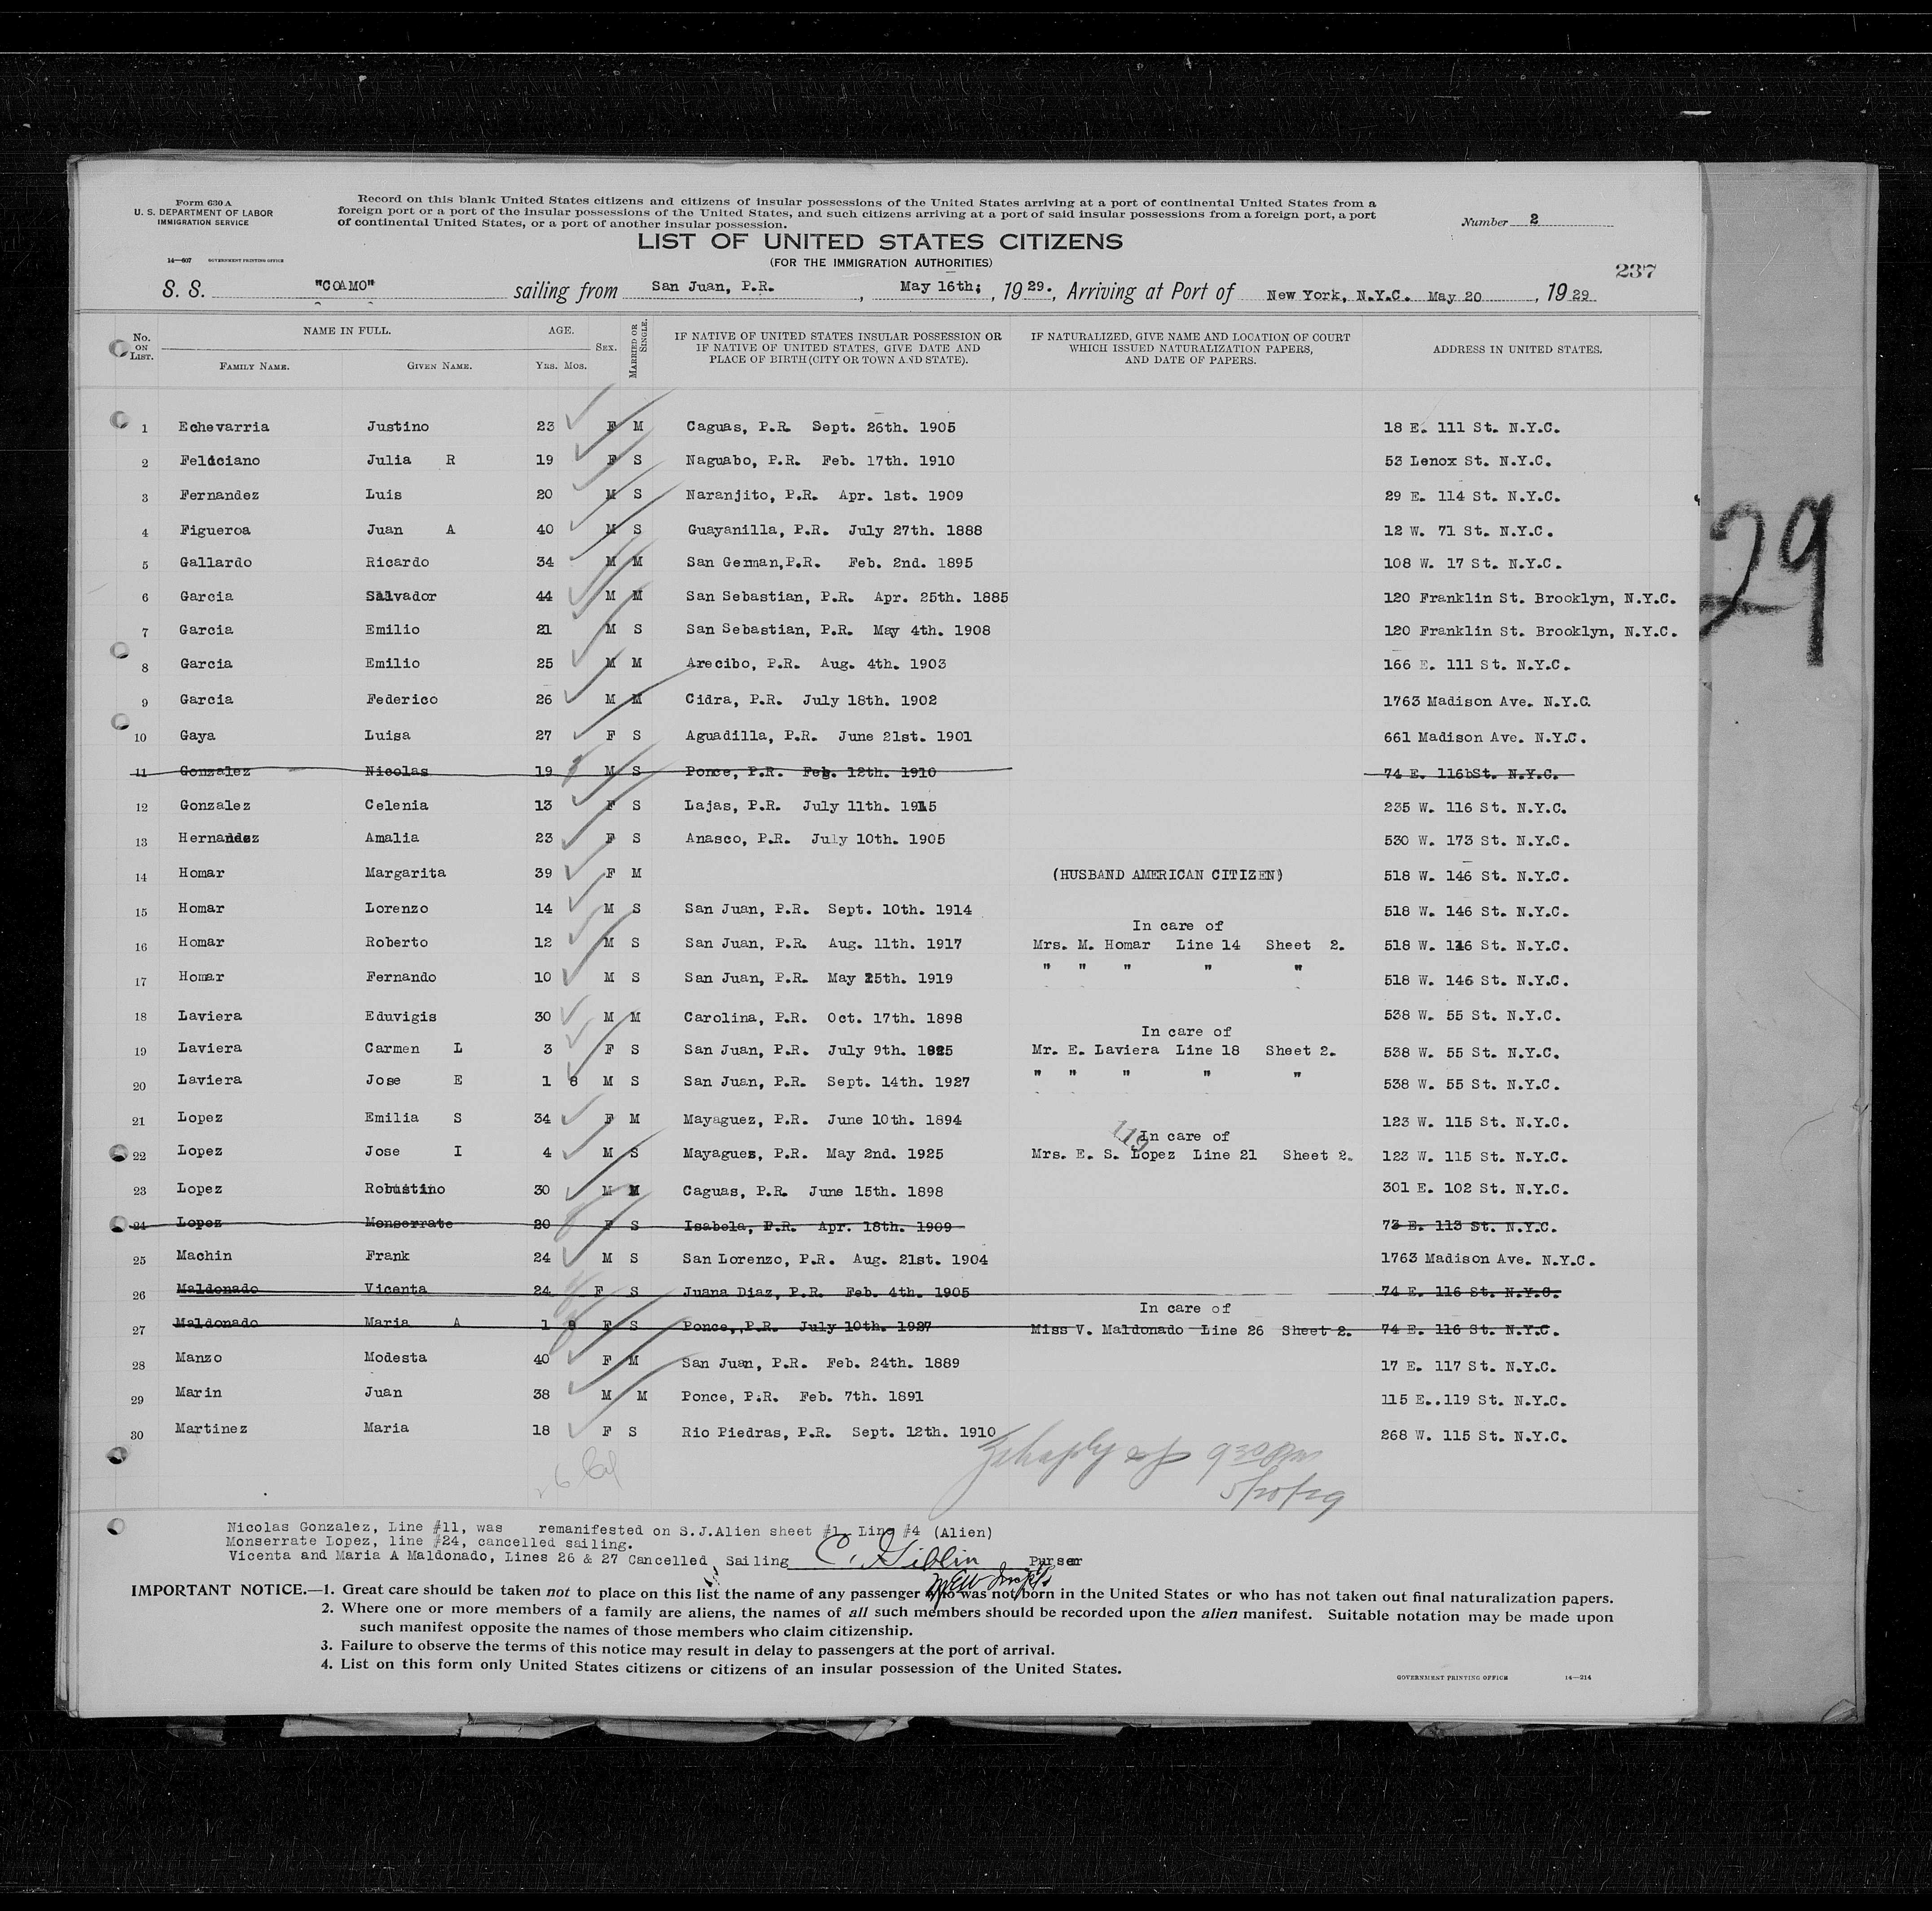 Form 630 A
U. S. DEPARTMENT OF LABOR
IMMIGRATION SERVICE
14—607 GOVERNMENT PRINTING OFFICE
Record on this blank United States citizens and citizens of insular possessions of the United States arriving at a port of continental United States from a
foreign port or a port of the insular possessions of the United States, and such citizens arriving at a port of said insular possessions from a foreign port, a port
of continental United States, or a port of another insular possession.
Number 2
LIST OF UNITED STATES CITIZENS
(FOR THE IMMIGRATION AUTHORITIES)
237
S. S. "COAMO" sailing from San Juan, P.R. , May 16th; , 19 29. , Arriving at Port of New York, N.Y.C. May 20 , 19 29
No. ON LIST. NAME IN FULL. FAMILY NAME. GIVEN NAME. AGE. YRS. MOS. SEX. MARRIED OR SINGLE. IF NATIVE OF UNITED STATES INSULAR POSSESSION OR IF NATIVE OF UNITED STATES, GIVE DATE AND PLACE OF BIRTH (CITY OR TOWN AND STATE). IF NATURALIZED, GIVE NAME AND LOCATION OF COURT WHICH ISSUED NATURALIZATION PAPERS, AND DATE OF PAPERS. ADDRESS IN UNITED STATES.
1 Echevarria Justino 23 F M Caguas, P.R. Sept. 26th. 1905 18 E. 111 St. N.Y.C.
2 Feliciano Julia R 19 F S Naguabo, P.R. Feb. 17th. 1910 53 Lenox St. N.Y.C.
3 Fernandez Luis 20 M S Naranjito, P.R. Apr. 1st. 1909 29 E. 114 St. N.Y.C.
4 Figueroa Juan A 40 M S Guayanilla, P.R. July 27th. 1888 12 W. 71 St. N.Y.C.
5 Gallardo Ricardo 34 M M San German,P.R. Feb. 2nd. 1895 108 W. 17 St. N.Y.C.
6 Garcia Salvador 44 M M San Sebastian, P.R. Apr. 25th. 1885 120 Franklin St. Brooklyn, N.Y.C.
7 Garcia Emilio 21 M S San Sebastian, P.R. May 4th. 1908 120 Franklin St. Brooklyn, N.Y.C.
8 Garcia Emilio 25 M M Arecibo, P.R. Aug. 4th. 1903 166 E. 111 St. N.Y.C.
9 Garcia Federico 26 M M Cidra, P.R. July 18th. 1902 1763 Madison Ave. N.Y.C.
10 Gaya Luisa 27 F S Aguadilla, P.R. June 21st. 1901 661 Madison Ave. N.Y.C.
11 Gonzalez Nicolas 19 M S Ponce, P.R. Feb. 12th. 1910 74 E. 116bSt. N.Y.C.
12 Gonzalez Celenia 13 F S Lajas, P.R. July 11th. 1915 235 W. 116 St. N.Y.C.
13 Hernandez Amalia 23 F S Anasco, P.R. July 10th. 1905 530 W. 173 St. N.Y.C.
14 Homar Margarita 39 F M (HUSBAND AMERICAN CITIZEN) 518 W. 146 St. N.Y.C.
15 Homar Lorenzo 14 M S San Juan, P.R. Sept. 10th. 1914 518 W. 146 St. N.Y.C.
In care of
16 Homar Roberto 12 M S San Juan, P.R. Aug. 11th. 1917 Mrs. M. Homar Line 14 Sheet 2. 518 W. 146 St. N.Y.C.
17 Homar Fernando 10 M S San Juan, P.R. May 25th. 1919 " " " " " 518 W. 146 St. N.Y.C.
18 Laviera Eduvigis 30 M M Carolina, P.R. Oct. 17th. 1898 538 W. 55 St. N.Y.C.
In care of
19 Laviera Carmen L 3 F S San Juan, P.R. July 9th. 1925 Mr. E. Laviera Line 18 Sheet 2. 538 W. 55 St. N.Y.C.
20 Laviera Jose E 1 8 M S San Juan, P.R. Sept. 14th. 1927 " " " " " 538 W. 55 St. N.Y.C.
21 Lopez Emilia S 34 F M Mayaguez, P.R. June 10th. 1894 123 W. 115 St. N.Y.C.
119 In care of
22 Lopez Jose I 4 M S Mayaguez, P.R. May 2nd. 1925 Mrs. E. S. Lopez Line 21 Sheet 2. 123 W. 115 St. N.Y.C.
23 Lopez Robustino 30 M M Caguas, P.R. June 15th. 1898 301 E. 102 St. N.Y.C.
24 Lopez Monserrate 20 F S Isabela, P.R. Apr. 18th. 1909 73 E. 113 St. N.Y.C.
25 Machin Frank 24 M S San Lorenzo, P.R. Aug. 21st. 1904 1763 Madison Ave. N.Y.C.
26 Maldonado Vicenta 24 F S Juana Diaz, P.R. Feb. 4th. 1905 74 E. 116 St. N.Y.C.
In care of
27 Maldonado Maria A 1 9 F S Ponce,,P.R. July 10th. 1927 Miss V. Maldonado Line 26 Sheet 2. 74 E. 116 St. N.Y.C.
28 Manzo Modesta 40 F M San Juan, P.R. Feb. 24th. 1889 17 E. 117 St. N.Y.C.
29 Marin Juan 38 M M Ponce, P.R. Feb. 7th. 1891 115 E..119 St. N.Y.C.
30 Martinez Maria 18 F S Rio Piedras, P.R. Sept. 12th. 1910 268 W. 115 St. N.Y.C.
5/20/29
29
Nicolas Gonzalez, Line #11, was remanifested on S.J.Alien sheet #1, Line #4 (Alien)
Monserrate Lopez, line #24, cancelled sailing.
Vicenta and Maria A Maldonado, Lines 26 & 27 Cancelled Sailing C. Giblin Purser
IMPORTANT NOTICE.—1. Great care should be taken not to place on this list the name of any passenger who was not born in the United States or who has not taken out final naturalization papers.
2. Where one or more members of a family are aliens, the names of all such members should be recorded upon the alien manifest. Suitable notation may be made upon
such manifest opposite the names of those members who claim citizenship.
3. Failure to observe the terms of this notice may result in delay to passengers at the port of arrival.
4. List on this form only United States citizens or citizens of an insular possession of the United States.
GOVERNMENT PRINTING OFFICE 14—214